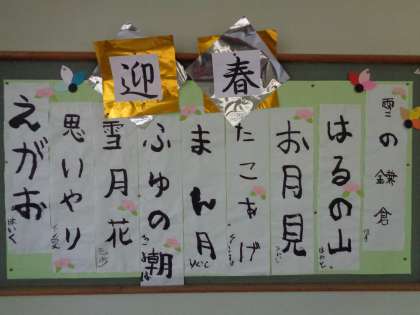 迎春
雪の鎌倉
はるの山
お月見
たこあげ
まん月
ふゆの朝
雪月花
思いやり
えがお